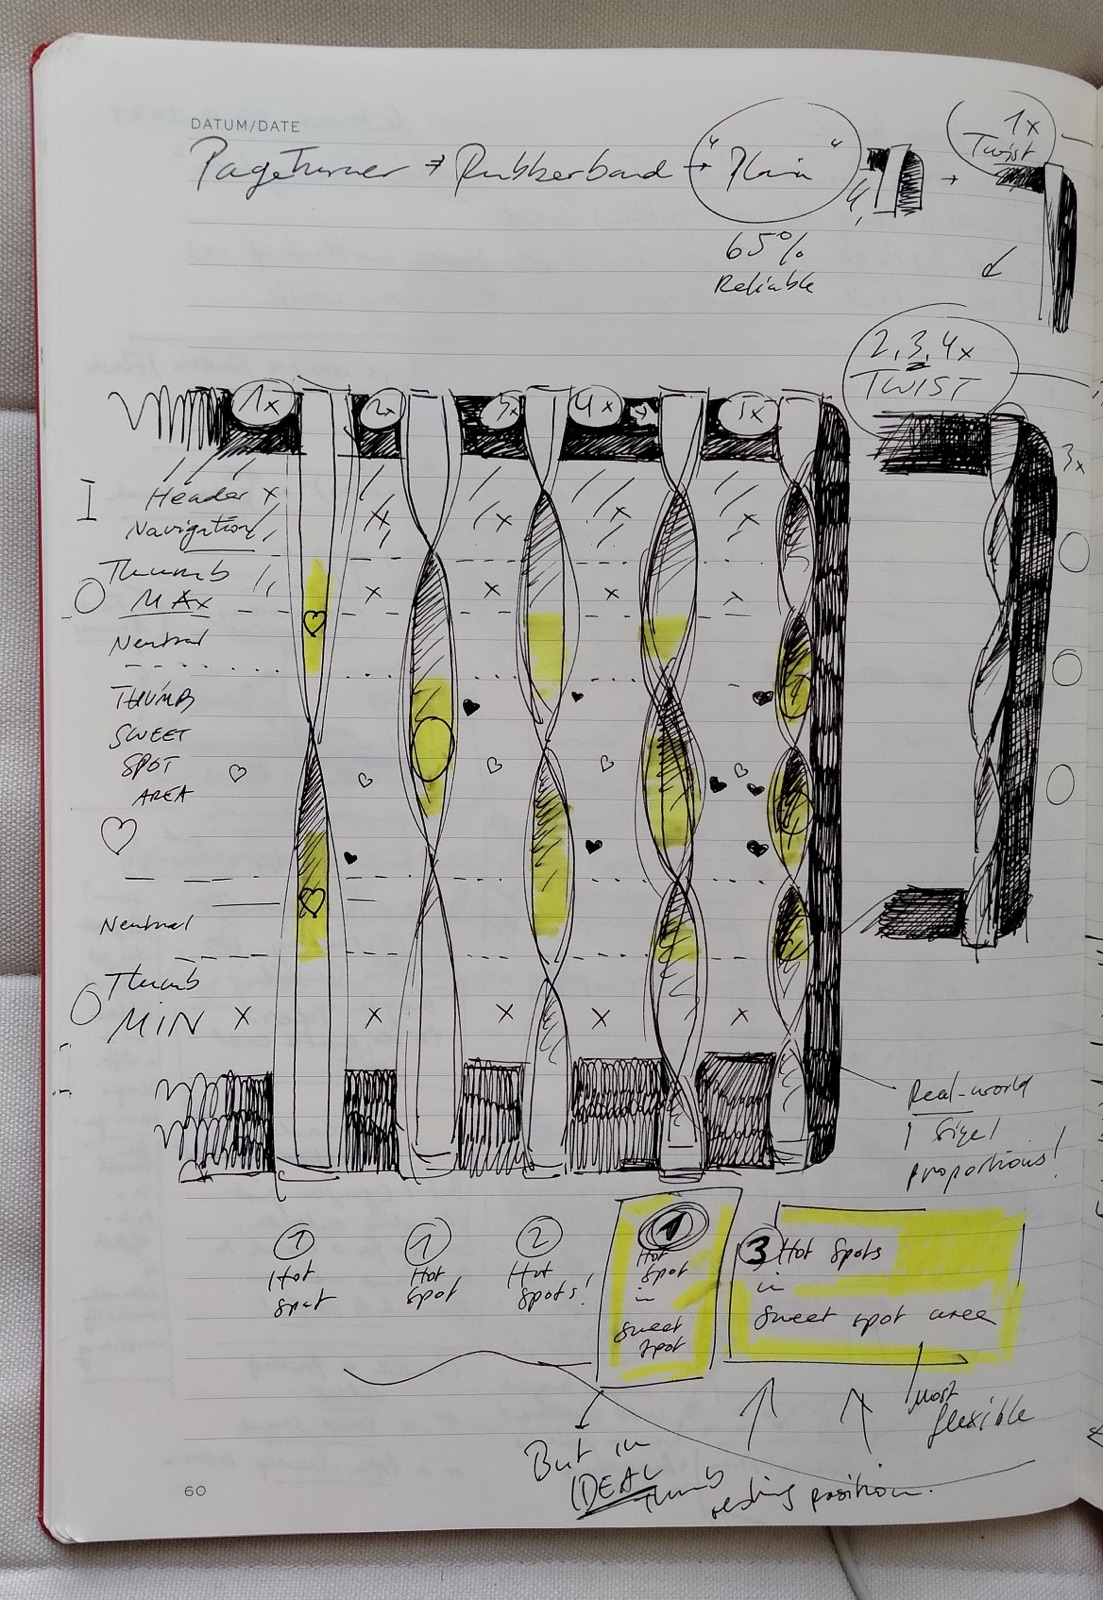 DATUM/DATE
PageTurner → Rubberband → "Plain"
1x
Twist
65%
Reliable
2, 3, 4x
TWIST
1x 2x 3x 4x → 5x
3x
Header x
Navigation
Thumb
MAX
Neutral
THUMB
SWEET
SPOT
AREA
Neutral
Thumb
MIN
Real-world
size!
proportions!
1
Hot
spot
1
Hot
Spot
2
Hot
Spots!
1
Hot
Spot
in
sweet
spot
3 Hot Spots
in
Sweet spot area
most
flexible
But in
IDEAL thumb resting position.
60